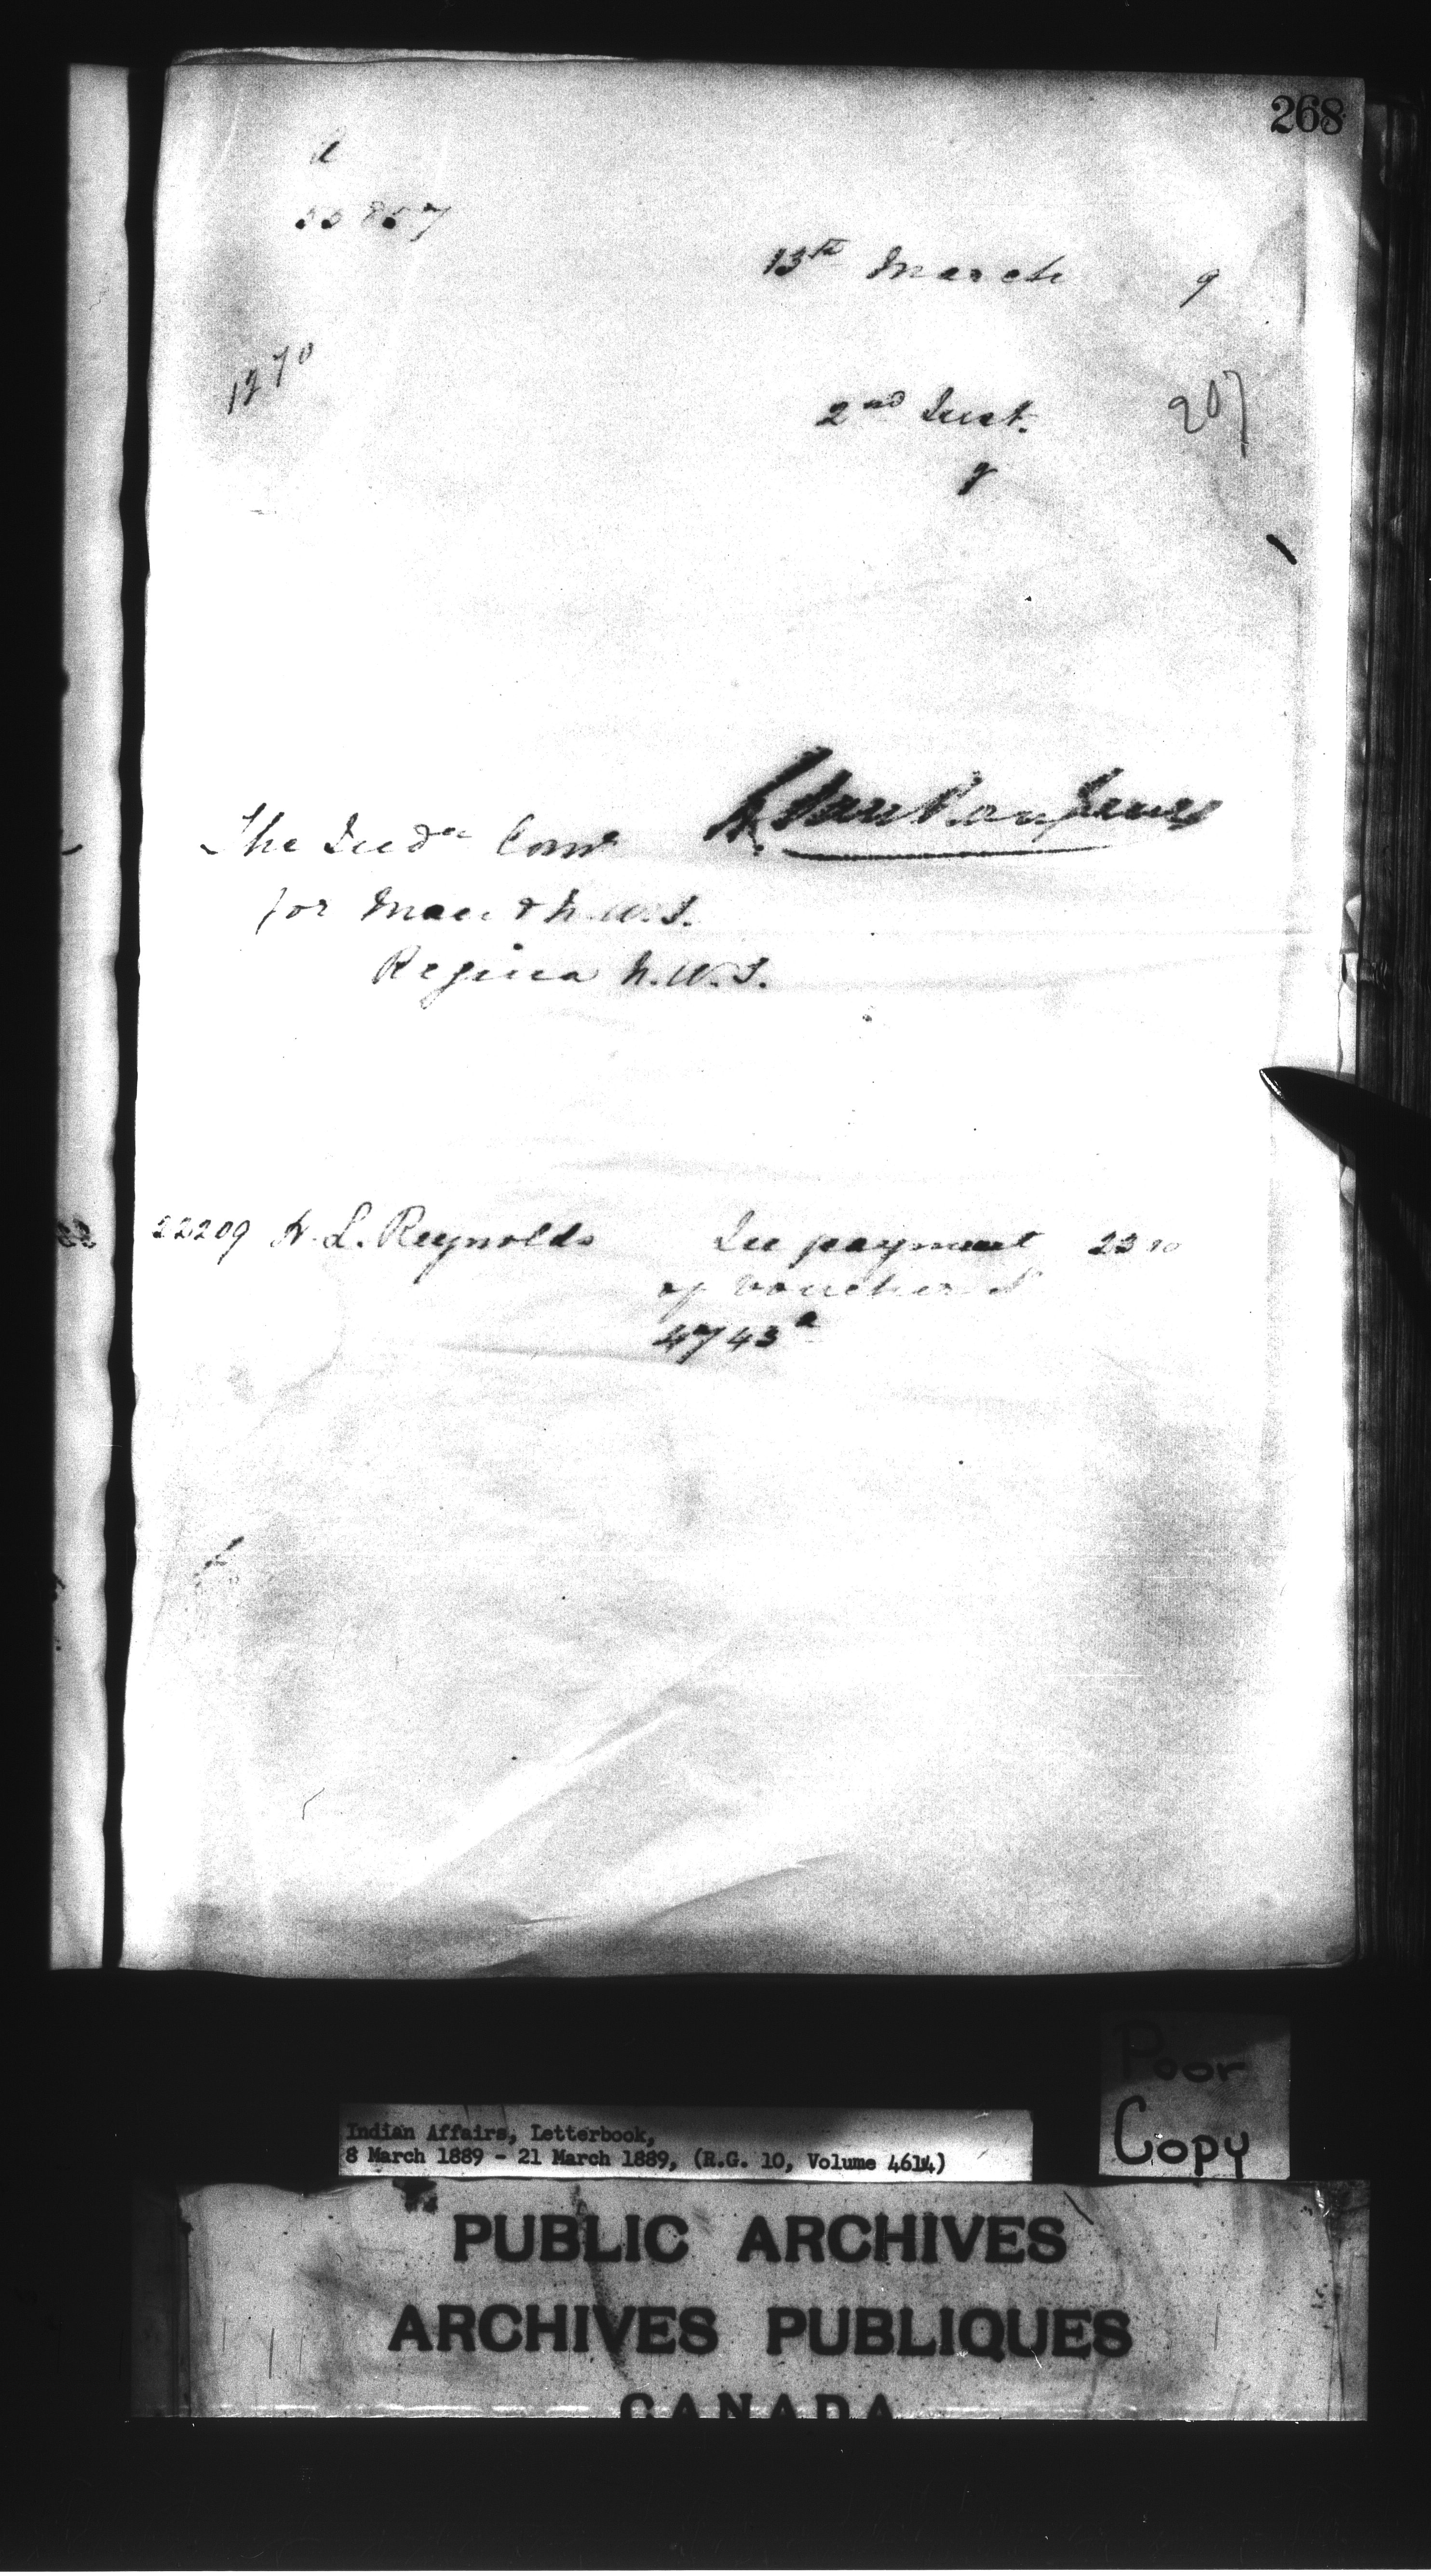 268
a
55857
13th March 9
1270
2nd Inst.
207
9
L. VanKoughnet
The Indn Comr
for Man & N.W.T.
Regina N.W.T.
22209 N. L. Reynolds In payment 23 10
of voucher
4743a
Poor
Copy
Indian Affairs, Letterbook,
8 March 1889 - 21 March 1889, (R.G. 10, Volume 4614)
PUBLIC ARCHIVES
ARCHIVES PUBLIQUES
CANADA